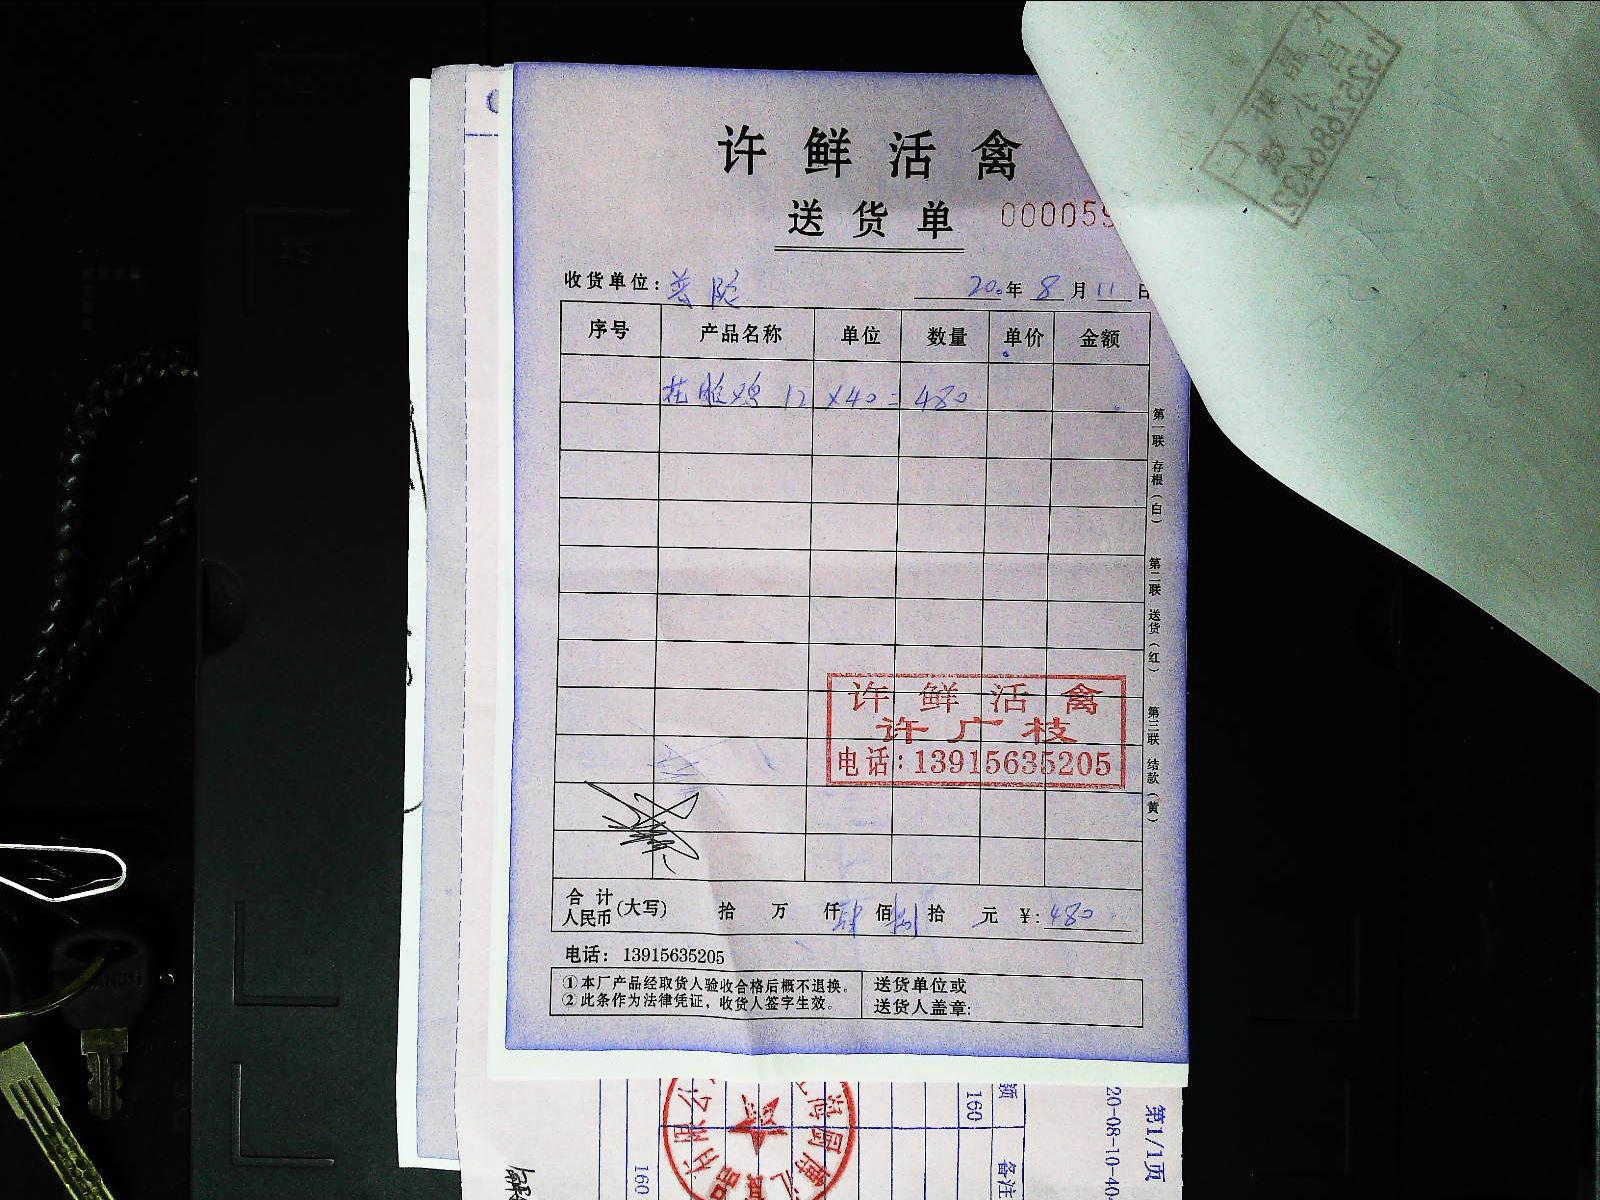 许鲜活禽
送货单
000059
收货单位：普陀 20.年 8月11日
序号 产品名称 单位 数量 单价 金额
花雕鸡 12 ×40=480
第一联 存根（白）
第二联 送货（红）
第三联 结款（黄）
许鲜活禽
许广枝
电话：13915635205
合计人民币（大写） 拾 万 仟 肆佰捌拾 元 ¥：480
电话：13915635205
①本厂产品经取货人验收合格后概不退换。
②此条作为法律凭证，收货人签字生效。
送货单位或
送货人盖章：
额
160
备注
160
20-08-10-40
第1/1页